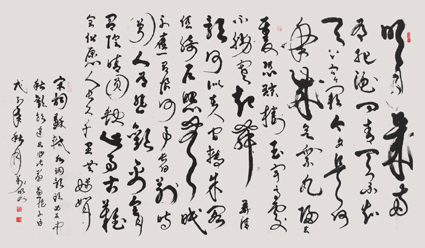 明月幾時
有把酒問青天不知
天上宮闕今夕是何
年我欲乘風歸去
又恐瓊樓玉宇高處
不勝寒起舞弄清
影何似在人間轉朱閣
低綺戶照無眠
不應有恨何事長向別時
圓人有悲歡離合月有
陰晴圓缺此事古難
全但願人長久千里共嬋娟
宋詞蘇軾水調歌頭